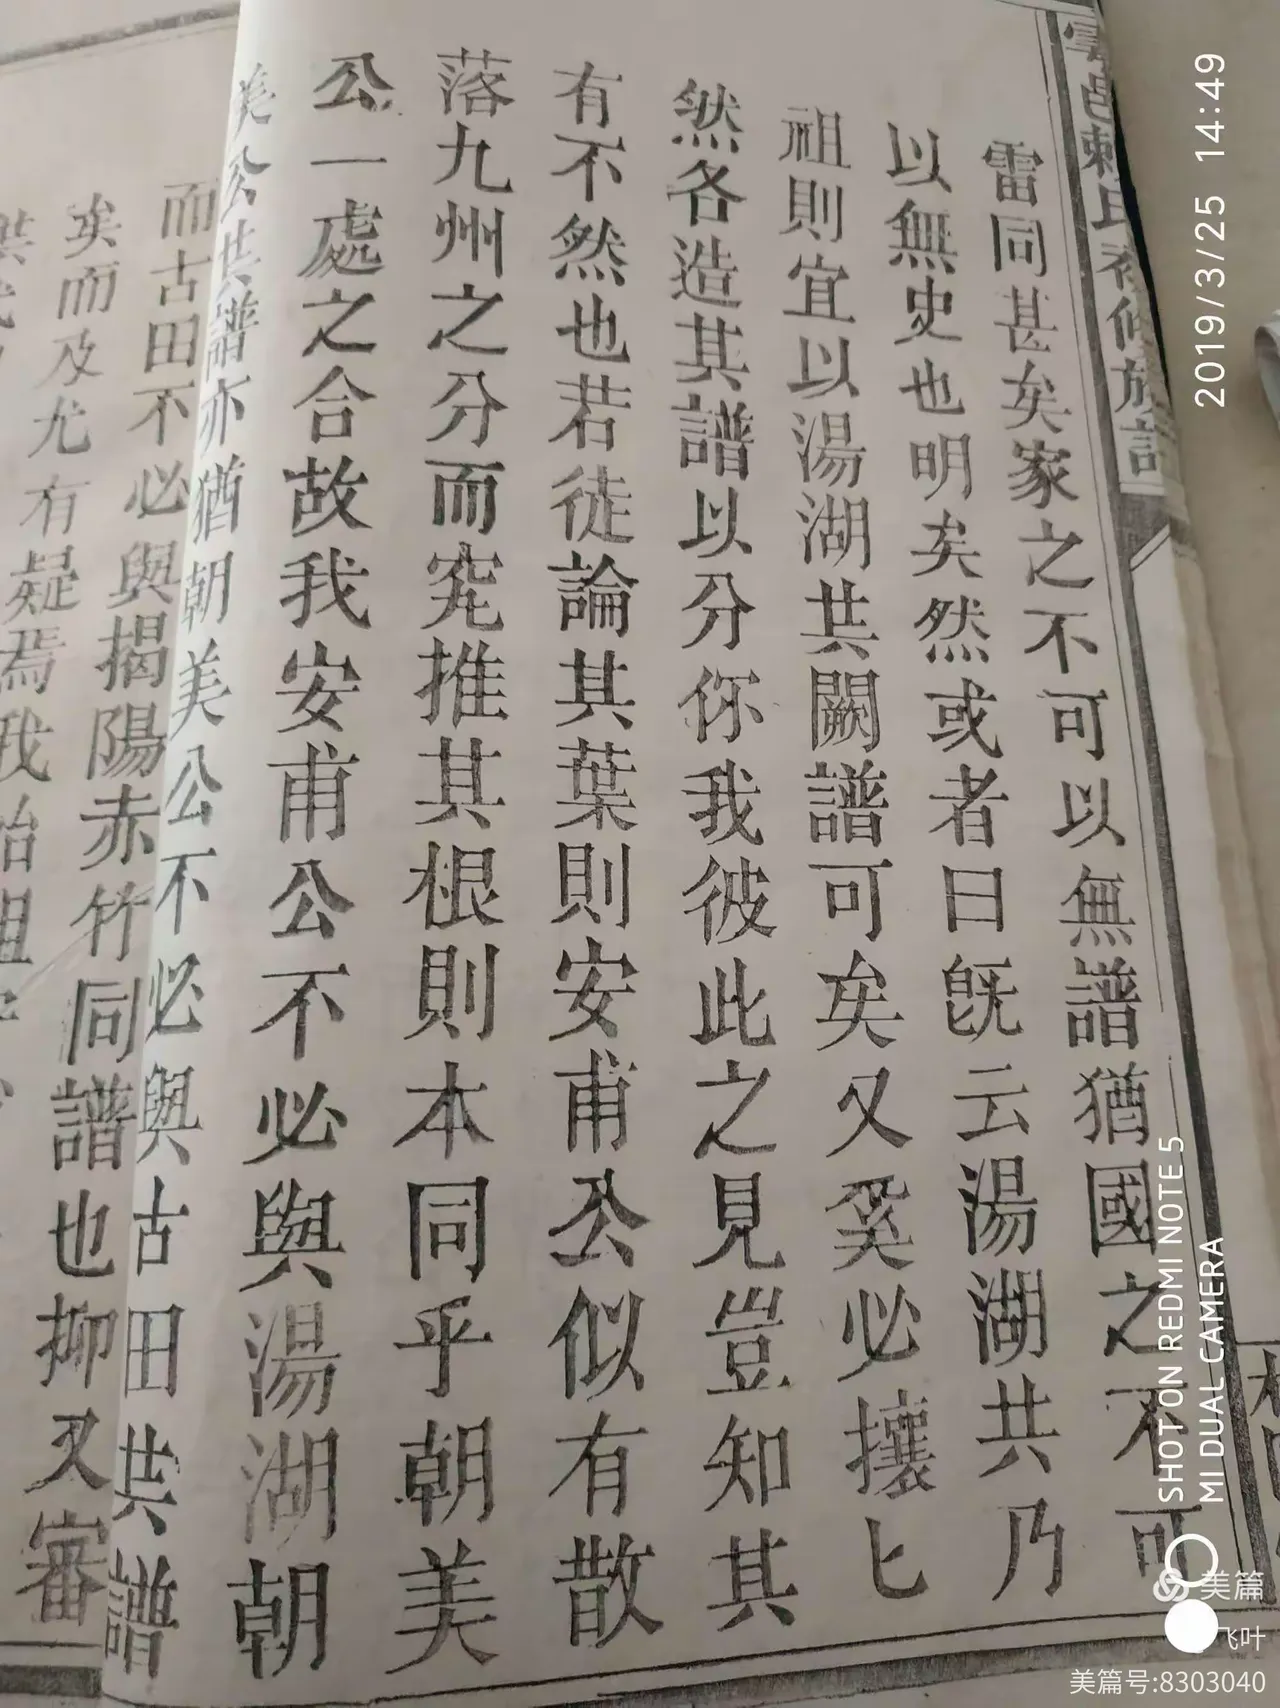 雷同甚矣家之不可以無譜猶國之不可
以無史也明矣然或者曰旣云湯湖共乃
祖則宜以湯湖共闕譜可矣又奚必攘匕
然各造其譜以分你我彼此之見豈知其
有不然也若徒論其葉則安甫公似有散
落九州之分而究推其根則本同乎朝美
公一處之合故我安甫公不必與湯湖朝
美公共譜亦猶朝美公不必與古田共譜
而古田不必與揭陽赤竹同譜也抑又審
矣而及尤有疑焉我始祖
2019/3/25 14:49
SHOT ON REDMI NOTE 5
MI DUAL CAMERA
美篇
飞叶
美篇号:8303040